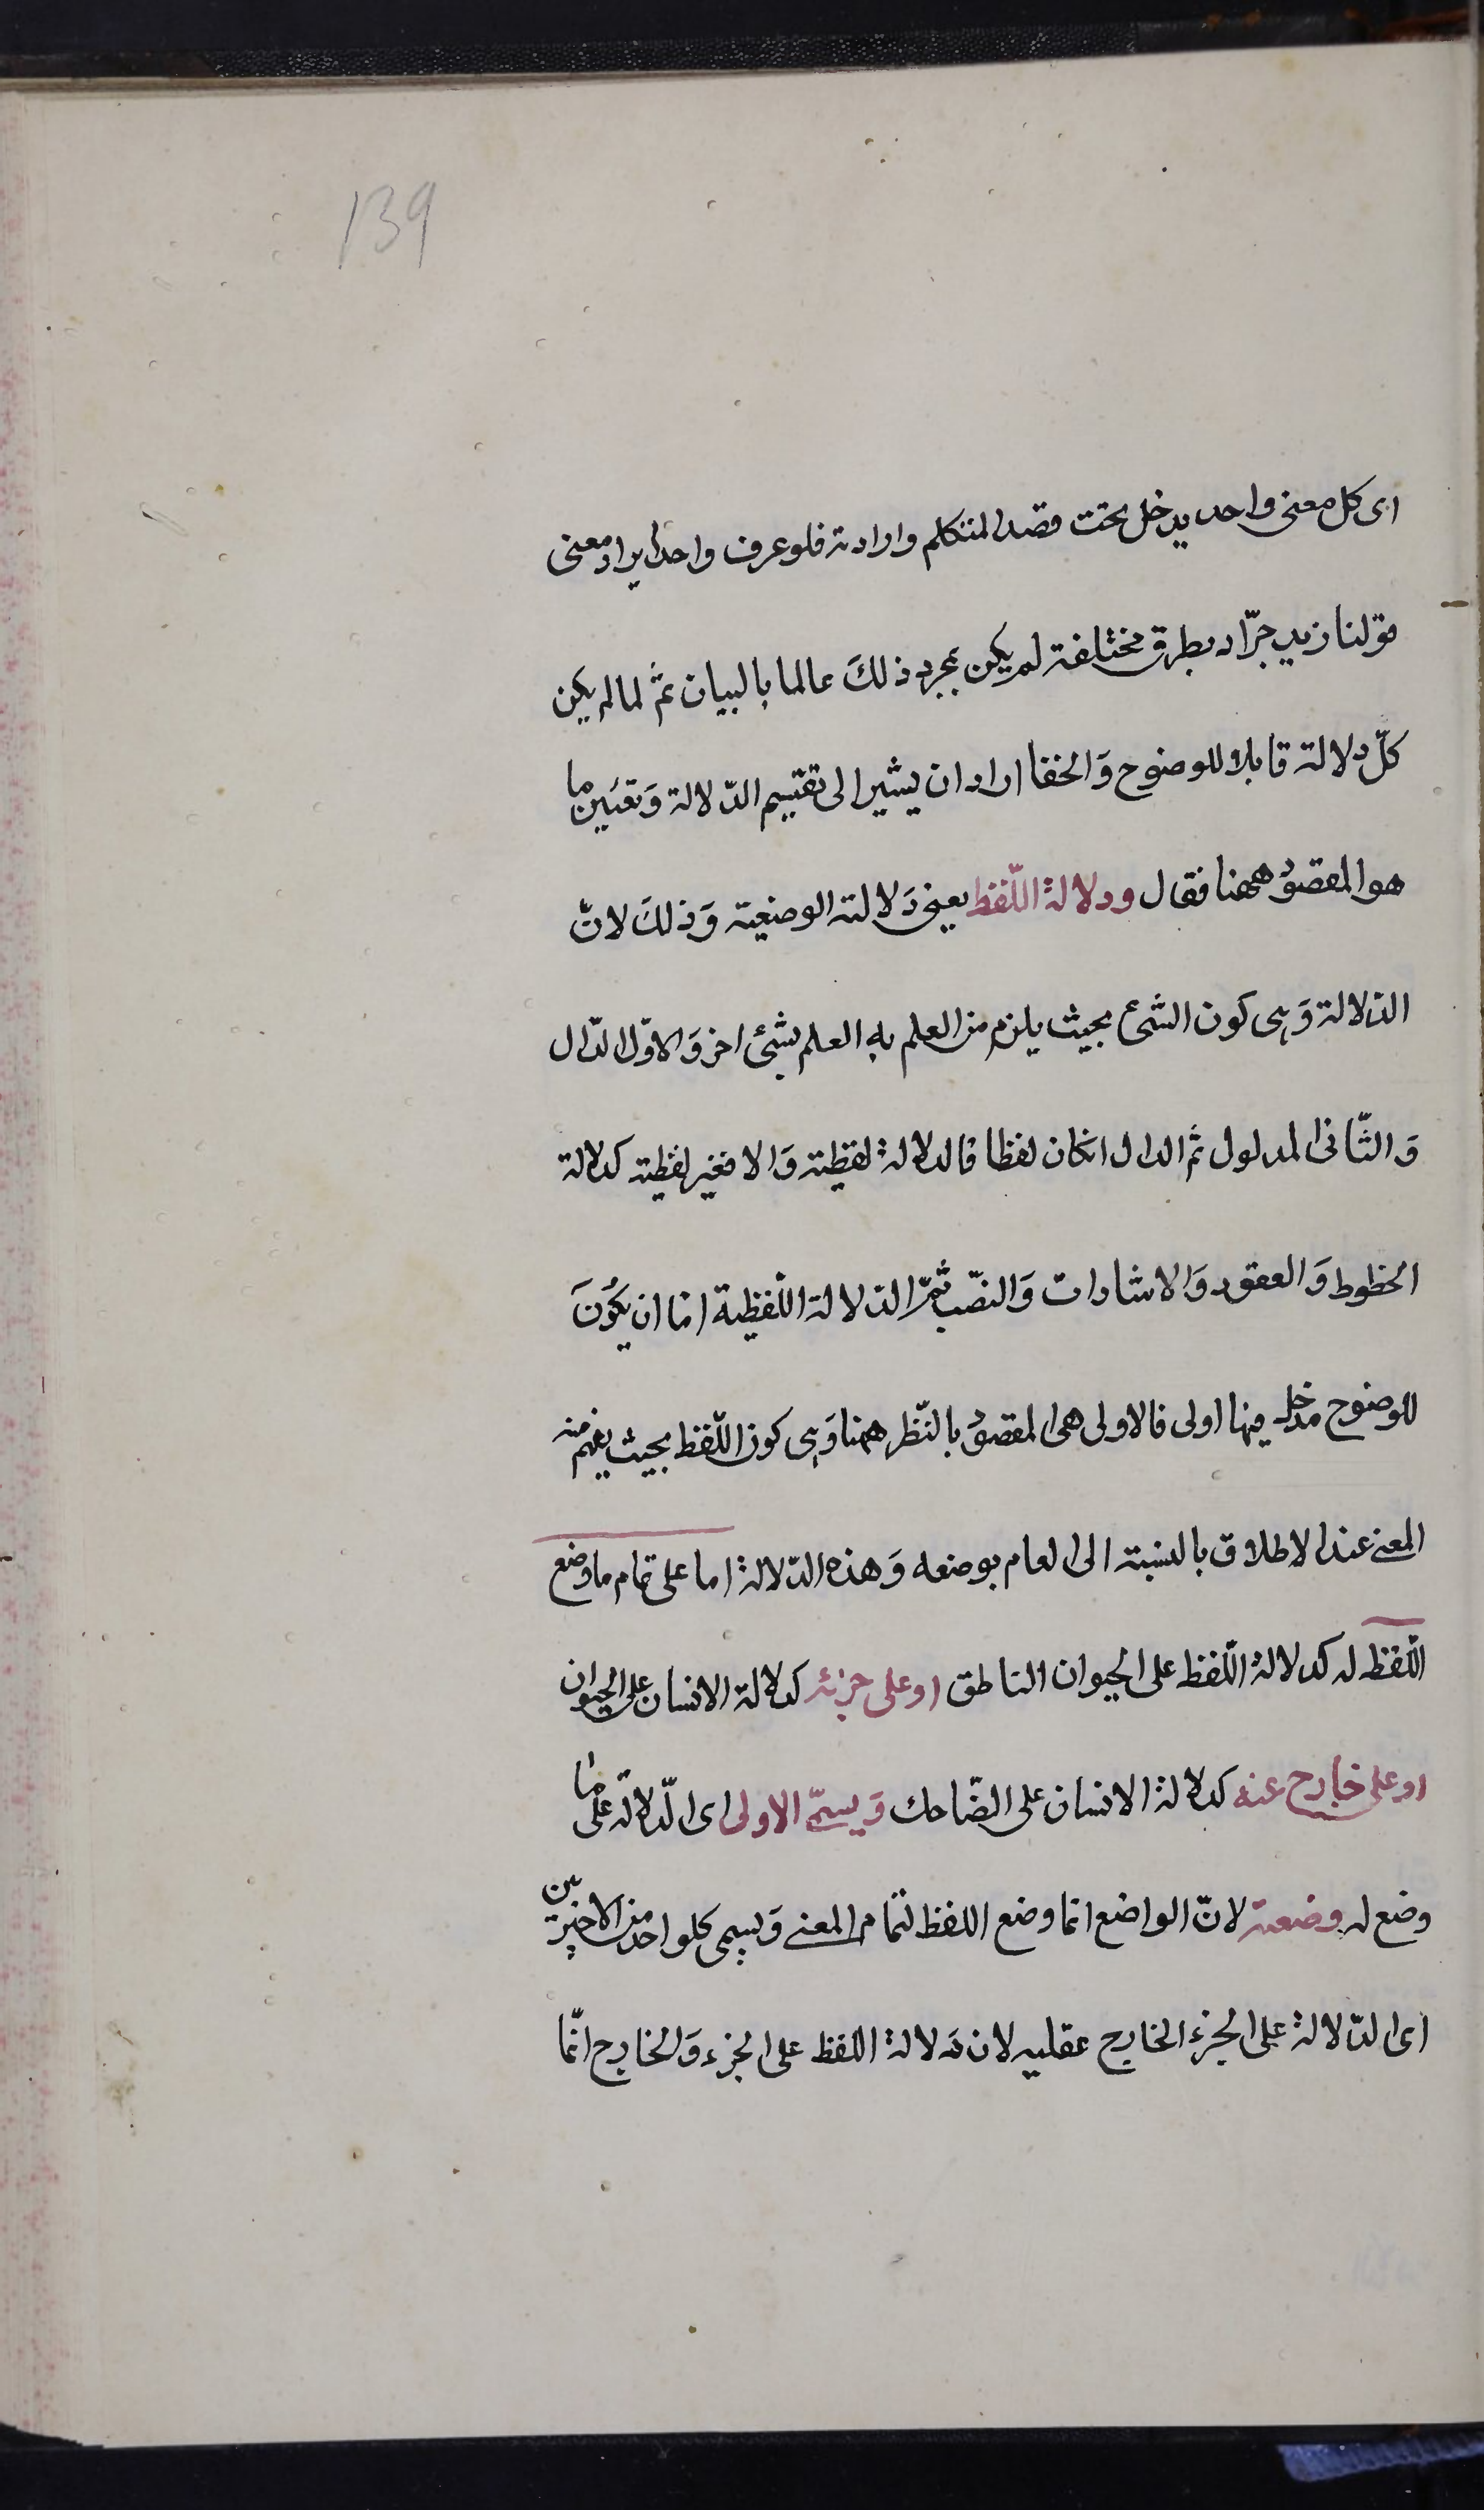 139
اى كل معنى واحد يدخل تحت قصد المتكلم وارادته فلو عرف واحد ايراد معنى
قولنا زيد جوّاد بطرق مختلفة لم يكن بمجرد ذلكَ عالما بالبيان ثمّ لما لم يكن
كلّ دلالة قابلا للوضوح وَالخفا اراد ان يشير الى تقسيم الدّلالة وَتعيَين ما
هو المقصوُد ههنا فقال ودلالةُ اللّفظ يعنى دَلالته الوضعية وَذلكَ لانّ
الدّلالة وَهى كون الشئ بحيث يلزم من العلم به العلم بشئ اخر وَالاوّل الدّال
وَالثّانى المدلول ثم الدال انكان لفظا فالدلالةُ لفظية وَالا فغير لفظية كدلالة
الخطوط وَالعقود وَالاشارات وَالنصّب ثمّ الدّلالة اللّفظية اما ان يكوُنَ
للوضوح مدخل فيها اولى فالاولى هى المقصوُد بالنّظر ههنا وَهى كون اللّفظ بحيث يفهم منه
المعنى عند الاطلاق بالنسبة الى العام بوضعه وَهذه الدّلالةُ اما على تمام ما وضع
اللّفظ له كدلالةُ اللّفظ على الحيوان الناطق او على جزئه كدلالة الانسان على الحيوان
او على خارج عنه كدلالةُ الانسان على الضّاحك وَيسمّى الاولى اى الدّلالة على ما
وضع له وضعية لانّ الواضع انما وضع اللفظ لتمام المعنى وَيسمى كلواحد من الاخيرين
اى الدّلالةُ على الجزء الخارج عقليه لان دَلالةُ اللفظ على الجزء وَالخارج انّما